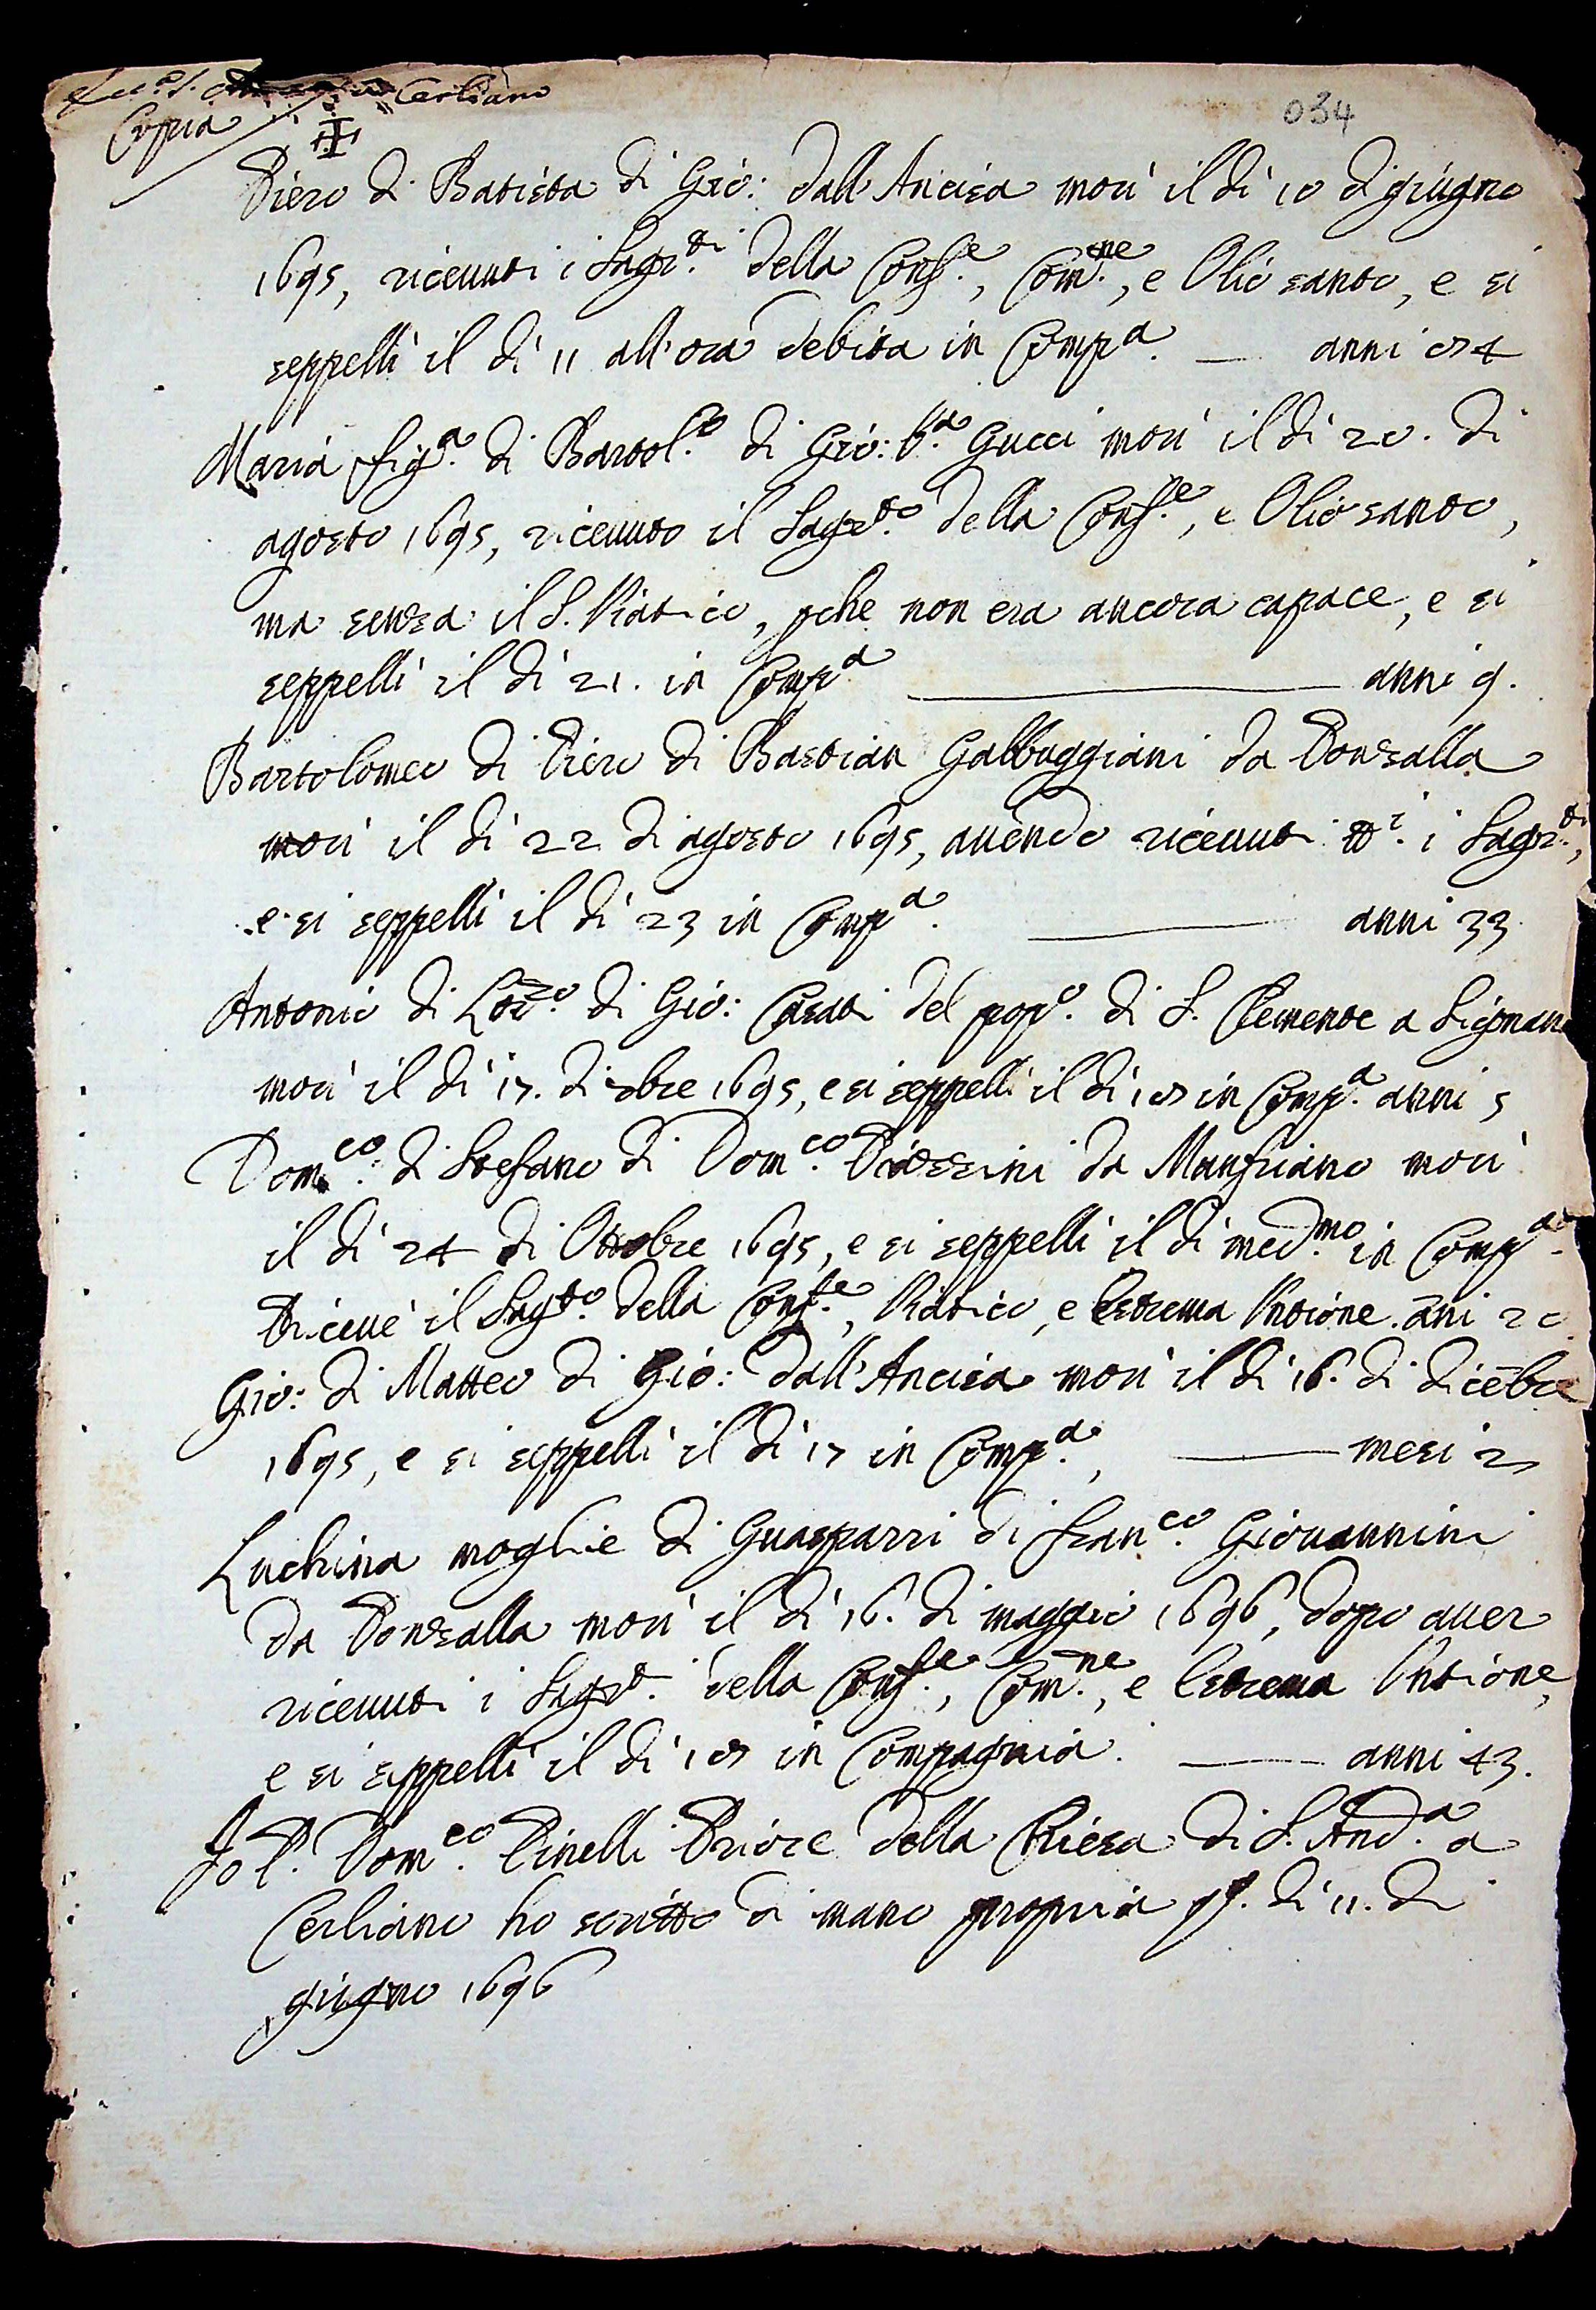 Cerliano
Copia
034
Piero di Batista di Gio: dall'Ancisa morì il dì 10 di giugno
1695, riceuuti i Sagr.ti della Conf.e, Com.ne, e Olio santo, e si
seppellì il dì 11 all'ora debita in Comp.a — anni 84
Maria fig.a di Bartol.o di Gio: B.a Gucci morì il dì 20. di
agosto 1695, riceuuto il Sagr.to della Conf.e, e Olio santo,
ma senza il S. Viatico, pche non era ancora capace, e si
seppellì il dì 21. in Comp.a — anni 9.
Bartolomeo di Piero di Bastian Galbuggiani da Donzalla
morì il dì 22 di agosto 1695, auendo riceuuti tt.i i Sagr.ti,
e si seppellì il dì 23 in Comp.a — anni 33
Antonio di Lor.zo di Gio: Casati del pop.o di S. Clemente a Signano
morì il dì 17. di 7bre 1695, e si seppellì il dì 18 in Comp.a anni 5
Dom.co di Stefano di Dom.co da Manfriano morì
il dì 24 di Ottobre 1695, e si seppellì il dì med.mo in Comp.a
Riceuè il Sag.to della Conf.e, Viatico, e Estrema Untione. ani 20
Gio: di Matteo di Gio: dall'Ancisa morì il dì 16. di dicēbre
1695, e si seppellì il dì 17 in Comp.a, — mesi 2
Luchina moglie di Guasparri di Fran.co Giouannini
da Donzalla morì il dì 16. di maggio 1696, dopo auer
riceuuti i Sagr.ti della Conf.e, Com.ne, e Estrema Untione,
e si seppellì il dì 18 in Compagnia. — anni 43.
Io P. Dom.co Pinelli Priore della Chiesa di S. And.a a
Cerliano ho scritto di mano propria q.o dì 11. di
giugno 1696